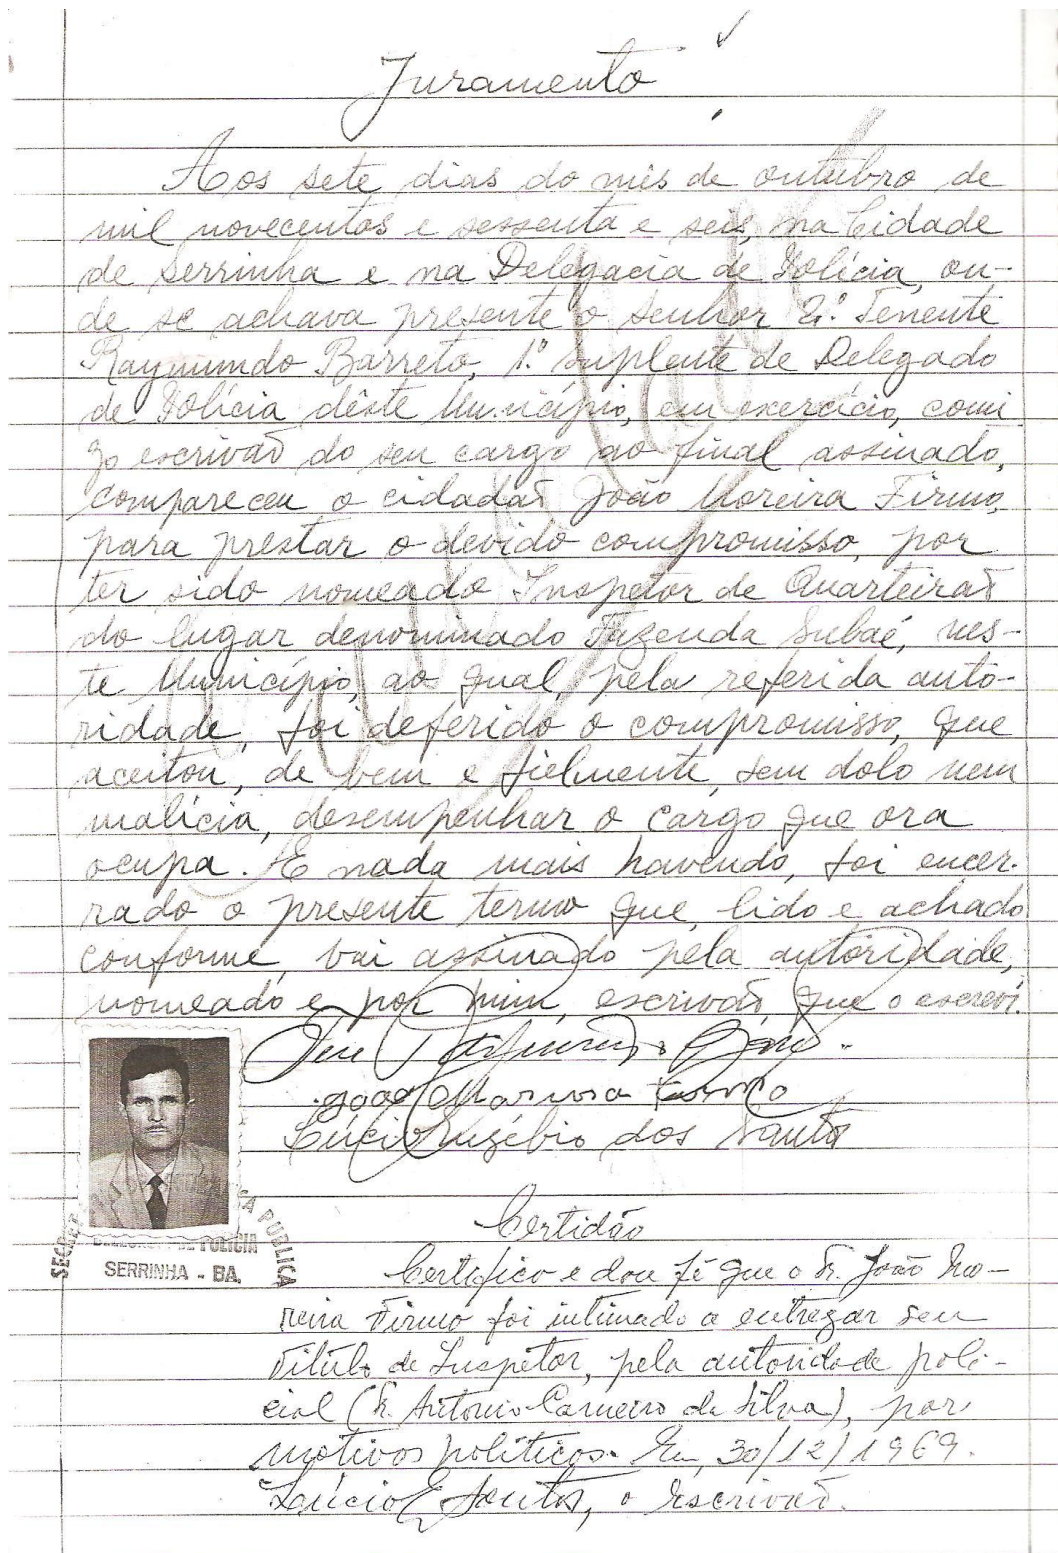 Juramento
Aos sete dias do mês de outubro de
mil novecentos e sessenta e seis, na Cidade
de Serrinha e na Delegacia de Polícia, on-
de se achava presente o senhor 2º Tenente
Raymundo Barreto, 1º suplente de Delegado
de Polícia dêste Município, em exercício, comi
go escrivão do seu cargo ao final assinado,
compareceu o cidadão João Moreira Firmo,
para prestar o devido compromisso, por
ter sido nomeado Inspetor de Quarteirão
do lugar denominado Fazenda Subaé, nes-
te Município, ao qual, pela referida auto-
ridade, foi deferido o compromisso, que
aceitou, de bem e fielmente, sem dolo nem
malícia, desempenhar o cargo que ora
ocupa. E nada mais havendo, foi encer-
rado o presente termo que, lido e achado
conforme, vai assinado pela autoridade,
nomeado e por mim, escrivão, que o escreví.
João Moreira Firmo
Lúcio Eugébio dos Santos
SECRET PUBLICA
DELEGACIA DE POLICIA
SERRINHA - BA.
Certidão
Certifico e dou fé que o Sr. João Mo-
reira Firmo foi intimado a entregar seu
título de Inspetor, pela autoridade poli-
cial (Sr. Antonio Carneiro da Silva), por
motivos políticos. Em, 30/12/1969.
Lúcio E Santos, o Escrivão.